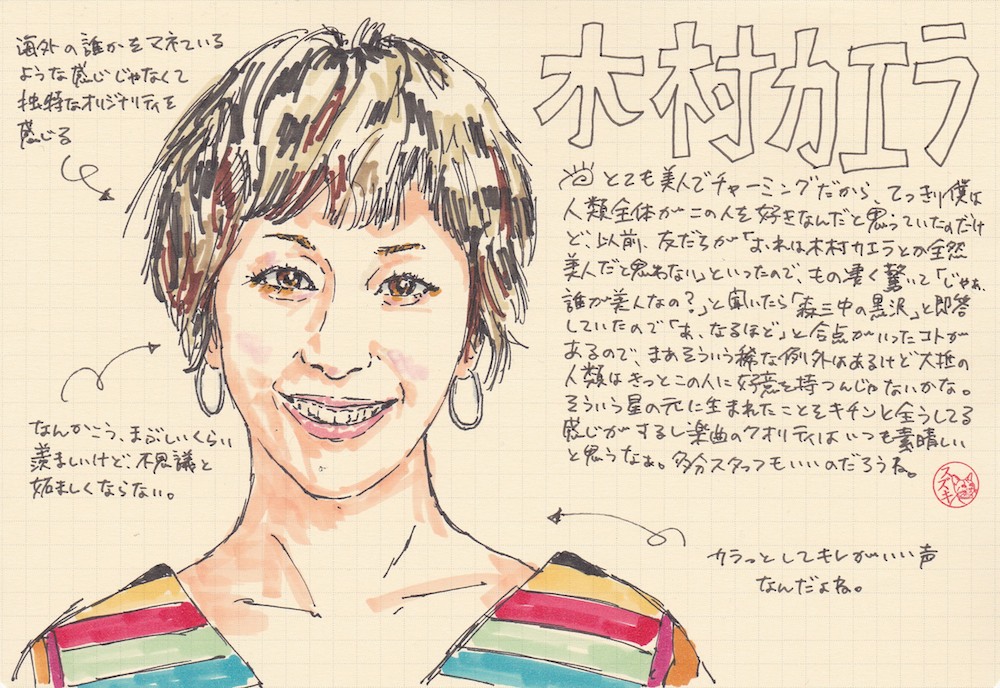 木村カエラ
海外の誰かをマネている
ような感じじゃなくて
独特なオリジナリティを
感じる
とても美人でチャーミングだから、てっきり僕は
人類全体がこの人を好きなんだと思っていたのだけ
ど、以前、友だちが「おれは木村カエラとか全然
美人だと思わない」といったので、もの凄く驚いて「じゃあ、
誰が美人なの?」と聞いたら「森三中の黒沢」と即答
していたので「あ、なるほど」と合点がいったコトが
あるので、まあそういう稀な例外はあるけど大抵の
人類はきっとこの人に好意を持つんじゃないかな。
そういう星の元に生まれたことをキチンと全うしてる
感じがするし楽曲のクオリティはいつも素晴しい
と思うなぁ。多分スタッフもいいのだろうね。
スズキ
なんかこう、まぶしいくらい
羨ましいけど、不思議と
妬ましくならない。
カラっとしてキレがいい声
なんだよね。